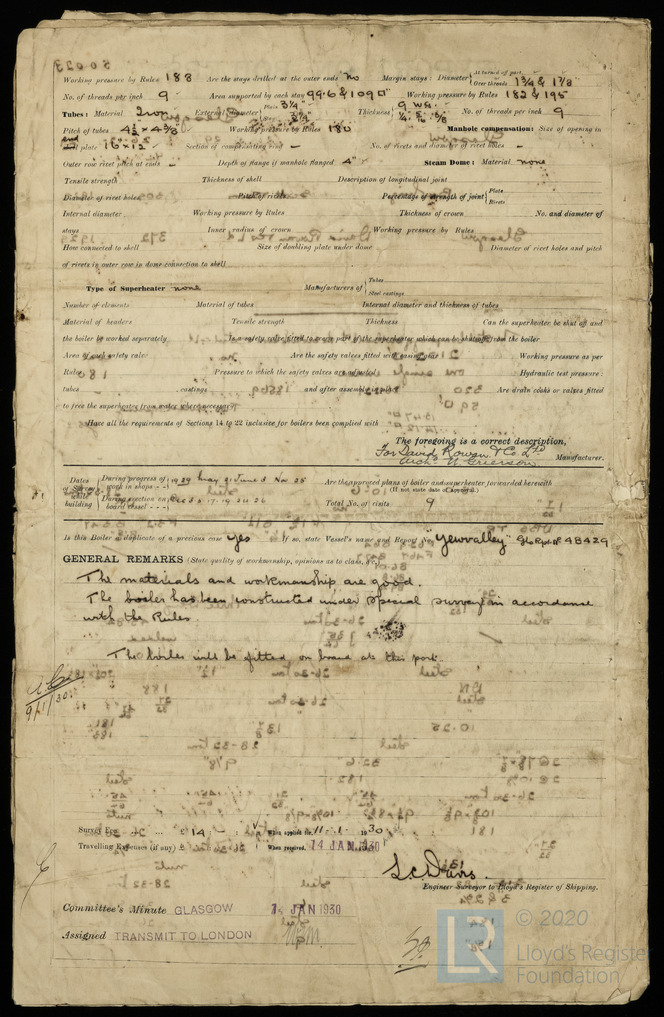 Working pressure by Rules 188 Are the stays drilled at the outer ends No Margin stays: Diameter { At turned off part, or Over threads 1¾ & 1⅞
No. of threads per inch 9 Area supported by each stay 99.6 & 109 □" Working pressure by Rules 182 & 195
Tubes: Material Iron External diameter { Plain 3¼" Stay 3¼" Thickness { 9 W.G. No. of threads per inch 9
Pitch of tubes Working pressure by Rules 180 Manhole compensation: Size of opening in
end plate 16" × 12" Section of compensating ring - No. of rivets and diameter of rivet holes -
Outer row rivet pitch at ends - Depth of flange if manhole flanged 4" Steam Dome: Material none
Tensile strength Thickness of shell Description of longitudinal joint
Diameter of rivet holes Pitch of rivets Percentage of strength of joint { Plate Rivets
Internal diameter Working pressure by Rules Thickness of crown No. and diameter of
stays Inner radius of crown Working pressure by Rules
How connected to shell Size of doubling plate under dome Diameter of rivet holes and pitch
of rivets in outer row in dome connection to shell
Type of Superheater none Manufacturers of { Tubes Steel castings
Number of elements Material of tubes Internal diameter and thickness of tubes
Material of headers Tensile strength Thickness Can the superheater be shut off and
the boiler be worked separately Is a safety valve fitted to every part of the superheater which can be shut off from the boiler
Area of each safety valve Are the safety valves fitted with easing gear Working pressure as per
Rules Pressure to which the safety valves are adjusted Hydraulic test pressure:
tubes castings and after assembly in place Are drain cocks or valves fitted
to free the superheater from water where necessary
Have all the requirements of Sections 14 to 22 inclusive for boilers been complied with
The foregoing is a correct description,
For David Rowan & Co. Ltd
Archd W. Grierson Manufacturer.
Dates of Survey while building { During progress of work in shops - - } 1929 May 31 June 5 Nov 25 Are the approved plans of boiler and superheater forwarded herewith (If not state date of approval.)
{ During erection on board vessel - - - } Dec 3 5 17 19 24 26 Total No. of visits 9
Is this Boiler a duplicate of a previous case Yes If so, state Vessel's name and Report No. "Yewvalley" Gls Rpt. No 48429
GENERAL REMARKS (State quality of workmanship, opinions as to class, &c.)
The materials and workmanship are good.
The boiler has been constructed under special survey in accordance
with the Rules
The boiler will be fitted on board at this port.
9/1/30.
Survey Fee £ 14 : When applied for, 11 - 1 - 1930
Travelling Expenses (if any) £ When received, 14 JAN 1930
L.C. Davis.
Engineer Surveyor to Lloyd's Register of Shipping.
Committee's Minute GLASGOW 14 JAN 1930
Assigned TRANSMIT TO LONDON
LR © 2020
Lloyd's Register
Foundation